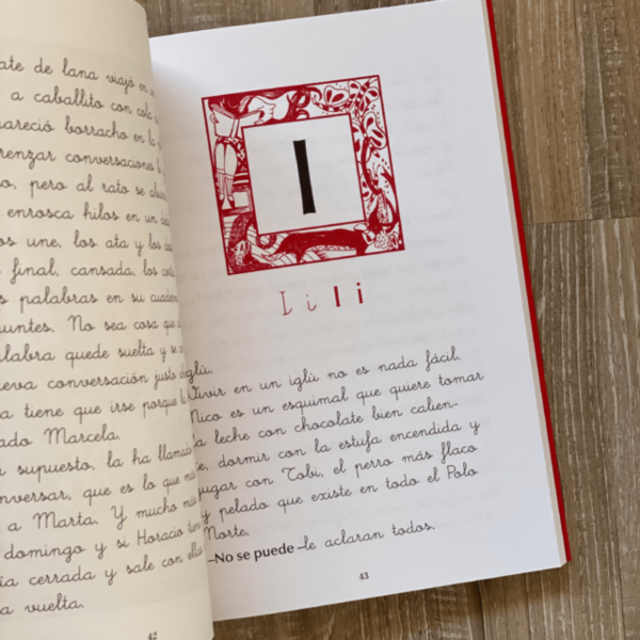 ate de lana viajó en
a caballito con cola
pareció borracho en la
renzar conversaciones
o, pero al rato se
enrosca hilos en un
os une, los ata y los
final, cansada, los
s palabras en su
puntes. No sea cosa que
alabra quede suelta y se
ueva conversación justo
a tiene que irse porque
ado Marcela.
supuesto, la ha llamado
onversar, que es lo que
a Marta. Y mucho
domingo y si Horacio
ía cerrada y sale con
a vuelta.
42
I
I i I i
iglú.
Vivir en un iglú no es nada fácil.
Nico es un esquimal que quiere tomar
la leche con chocolate bien calien-
te, dormir con la estufa encendida y
jugar con Tobi, el perro más flaco
y pelado que existe en todo el Polo
Norte.
–No se puede –le aclaran todos.
43